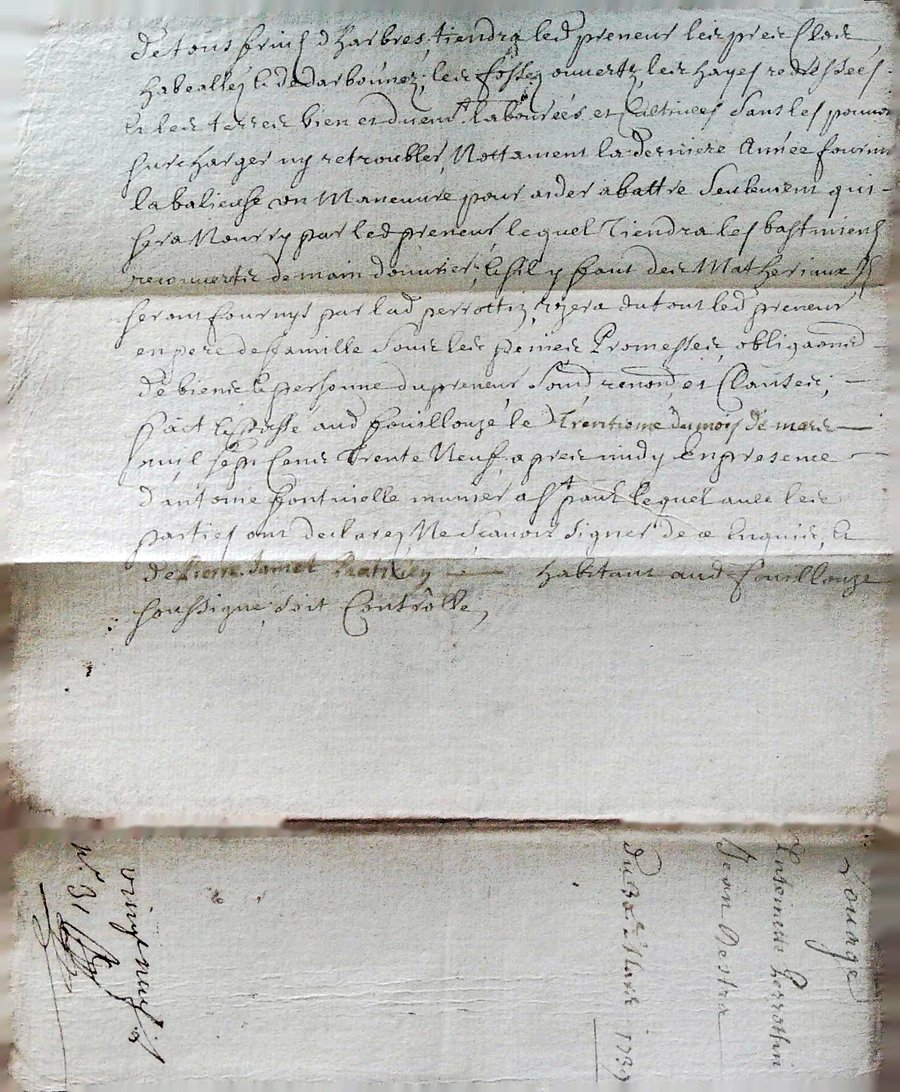 de tous fruis d harbres, tiendra led preneur les prés Clos
les fossez ouvertz, les hayes redressées
et les terres bien et duemt labourées et Cultivées sans les pouvoir
surcharger ny retroubler, Nottament la derniere Année fournir
un Maneuvre pour aider abattre Seulement qui
sera Nourry par led preneur lequel Tiendra les bastiments
recouverts de main d'ouvrier, & s'il y faut des Matheriaux Ils
seront fournys par lad perrottin, uzera du tout led preneur
en pere de famille Sous les peines Promesses, obligaons
de biens & personne du preneur Soud renond et Clauses,
fait & Passe aud fouillouze le Trentieme du mois de mars
mil sept Cens Trente Neuf, apres midy En presence
d'antoine lequel avec les
parties ont declarez Ne Scavoir Signer de ce Enquis, &
de pierre habitant aud fouillouze
soussigné, soit Contrôlle,
Louage
perrottin
Jean
Du 30e Mars 1739
vingt neuf
n° 31